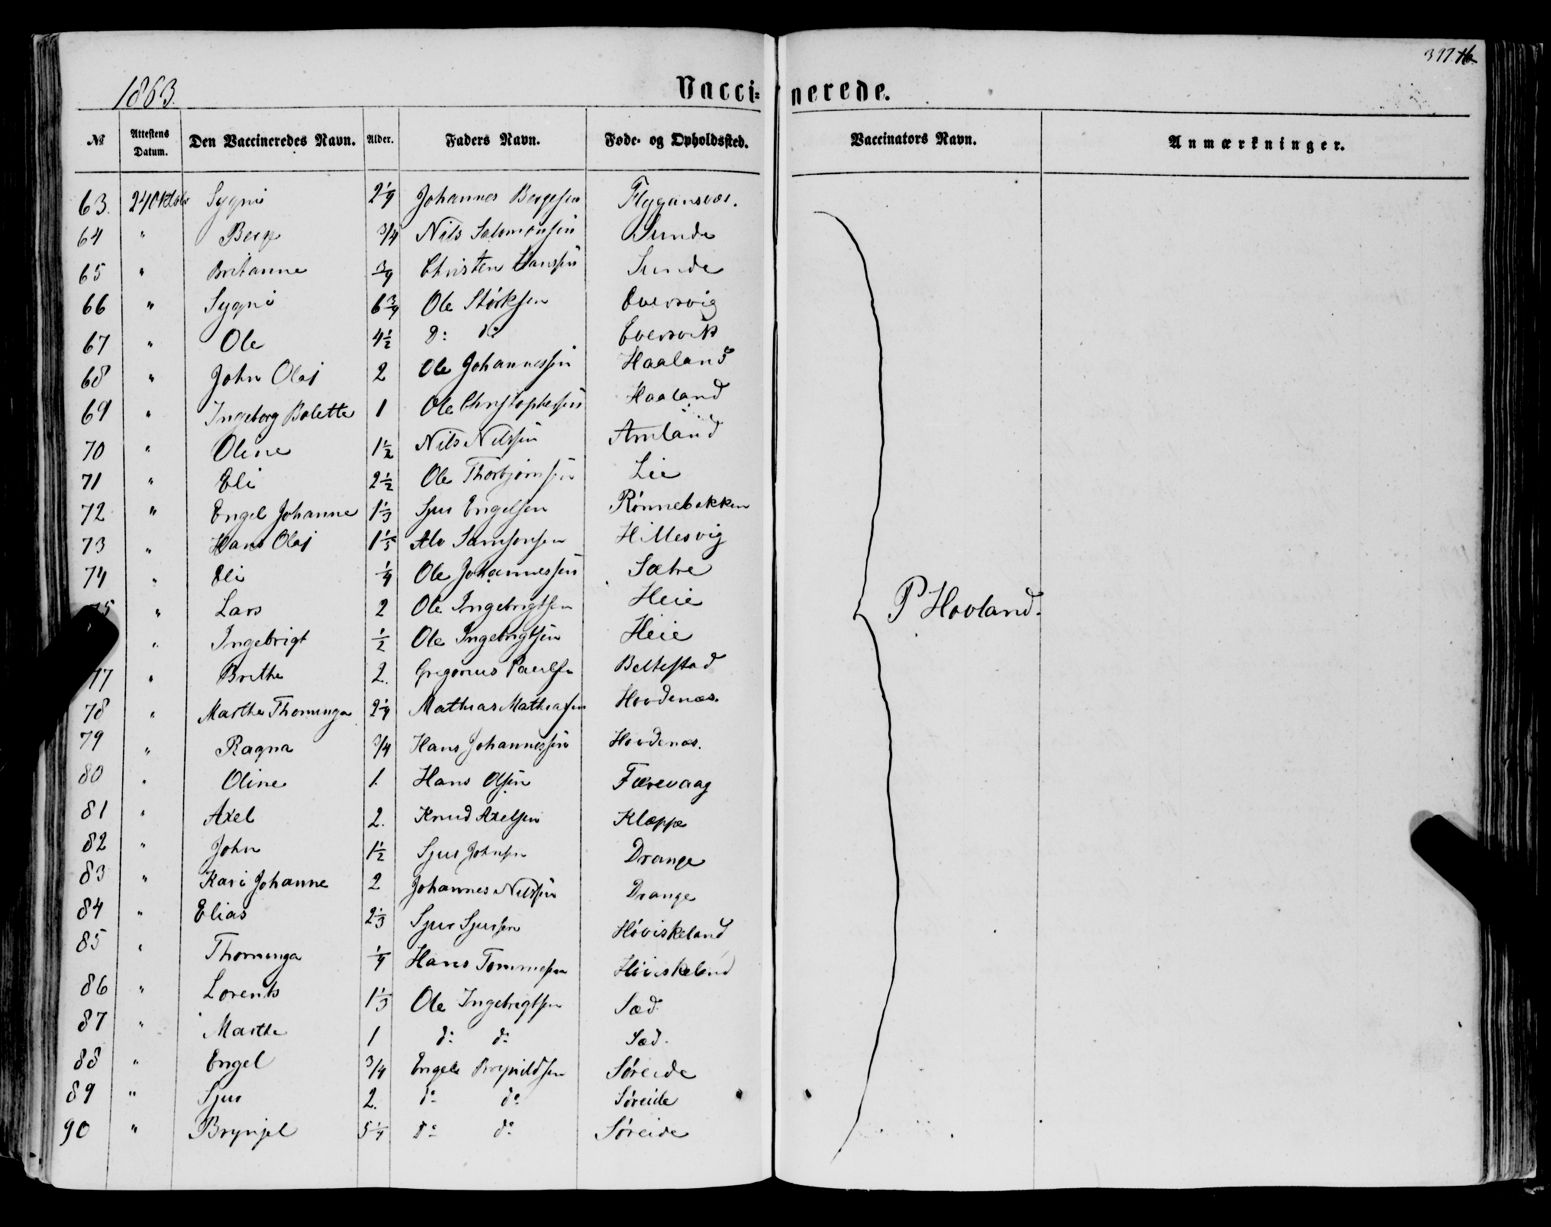 1863.
Vaccinerede.
№ Attestens Datum. Den Vaccineredes Navn. Alder. Faders Navn. Føde- og Opholdssted. Vaccinators Navn. Anmærkninger.
63. 24 Oktobr Sygni 2¼ Johannes Børgesen
64 " Berge 3/4 Nils Salomonsen Sunde
65 " Britanne ¾ Christen Hanssen Sunde
66 " Sygni 6¾ Ole Størksen Eversvig
67 " Ole 4½ do do Eversvik
68 " John Olaj 2 Ole Johannessen Haaland
69 " Ingeborg Bolette 1 Ole Christophersen Haaland
70 " Oline 1½ Nils Nilssen Amland
71 " Eli 2½ Ole Thorbjørnsen Lie
72 " Engel Johanne 1⅓ Sjur Engelsen Rønnebakken
73 " Hans Olaj 1⅓ Alv Samsonsen Hillesvig
74 " Eli ¼ Ole Johannessen Sætre
75 " Lars 2 Ole Ingebrigtsen Heie
" Ingebrigt ½ Ole Ingebrigtsen Heie
77 " Brithe 2. Gregorius Paulsen Beltestad
78 " Marthe Thominga 2¼ Mathias Mathiassen Hovdenæs.
79 " Ragna 3/4 Hans Johannessen Hovdenæs.
80 " Oline 1. Hans Olsen Færevaag
81 " Axel 2. Knud Axelsen Kleppe
82 " John 1½ Sjur Johnsen Drange
83 " Kari Johanne 2 Johannes Nilssen Drange
84 " Elias 2⅓ Sjur Sjursen Høviskeland
85 " Thominga ¼ Hans Tommesen Høviskeland
86 " Lorents 1⅓ Ole Ingebrigtsen Sæd
87 " Marthe 1 do do Sæd.
88 " Engel 3/4 Engel Brynildsen Søreide
89 " Sjur 2. do do Søreide
90 " Brynjel 5¼ do do Søreide
P Hovland.